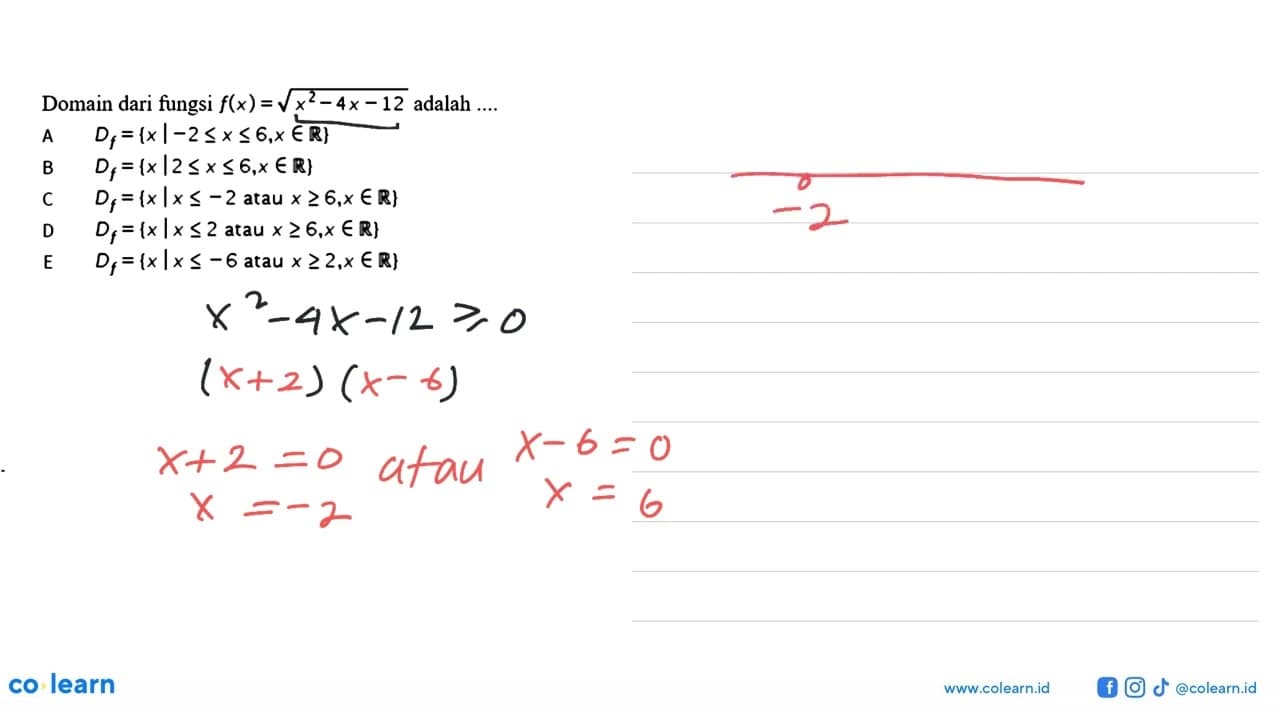 Domain dari fungsi f(x) = √x² − 4x − 12 adalah ....
A D_f = {x | −2 ≤ x ≤ 6, x ∈ ℝ}
B D_f = {x | 2 ≤ x ≤ 6, x ∈ ℝ}
C D_f = {x | x ≤ −2 atau x ≥ 6, x ∈ ℝ}
D D_f = {x | x ≤ 2 atau x ≥ 6, x ∈ ℝ}
E D_f = {x | x ≤ −6 atau x ≥ 2, x ∈ ℝ}
x² − 4x − 12 ≥ 0
(x+2) (x−6)
x+2 = 0 atau x−6 = 0
x = −2 x = 6
−2
co learn
www.colearn.id @colearn.id